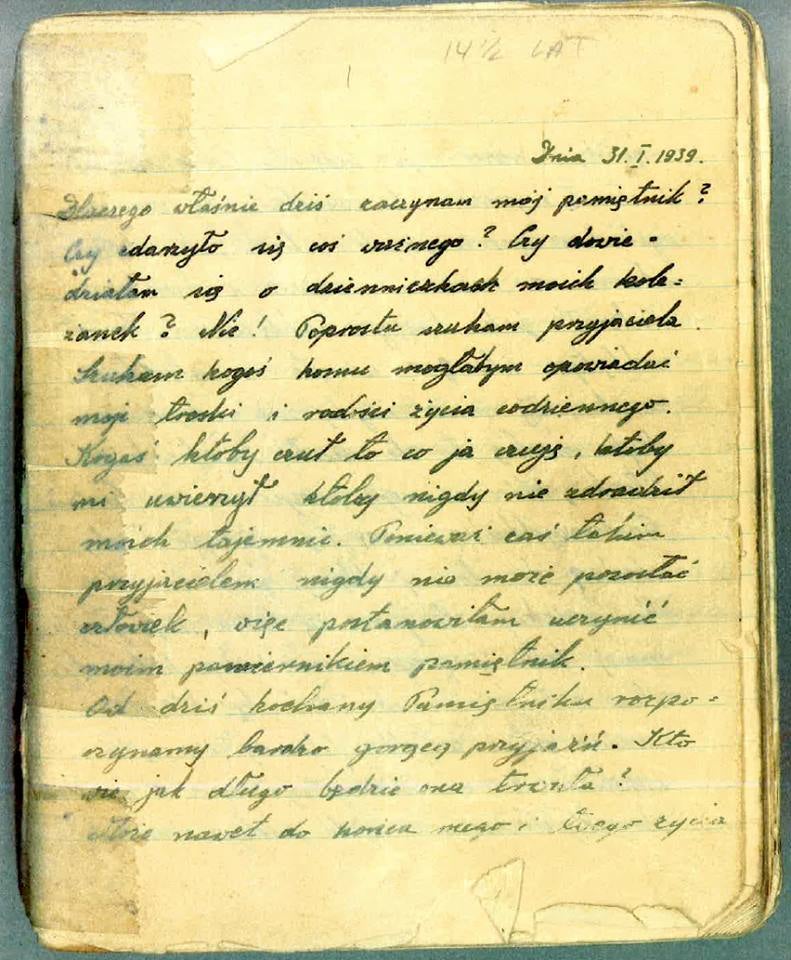 14 ½ LAT
Dnia 31.I.1939.
Dlaczego właśnie dziś zaczynam mój pamiętnik?
Czy zdarzyło się coś ważnego? Czy dowie-
działam się o dzienniczkach moich kole=
żanek? Nie! Poprostu szukam przyjaciela.
Szukam kogoś komu mogłabym opowiadać
moje troski i radości życia codziennego.
Kogoś ktoby czuł to co ja czuję, ktoby
mi uwierzył ktoby nigdy nie zdradził
moich tajemnic. Ponieważ zaś takim
przyjacielem nigdy nie może pozostać
człowiek, więc postanowiłam uczynić
moim powiernikiem pamiętnik.
Od dziś kochany Pamiętniku rozpo=
czynamy bardzo gorącą przyjaźń. Kto
wie jak długo będzie ona trwała?
Może nawet do końca mego i twego życia